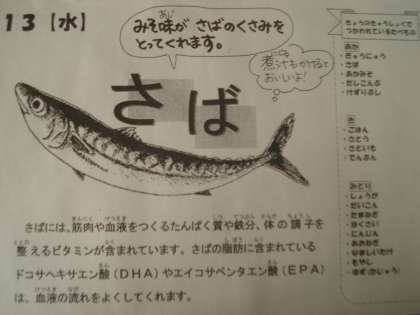 13【水】
みそ味が さばのくさみを
とってくれます。
煮つけもかけるて
おいしいよ!
さば
さばには、筋肉や血液をつくるたんぱく質や鉄分、体の調子を
整えるビタミンが含まれています。さばの脂肪に含まれている
ドコサヘキサエン酸(DHA)やエイコサペンタエン酸(EPA)
は、血液の流れをよくしてくれます。
きょうのきゅうしょくで
つかわれているたべもの
あか
・ぎゅうにゅう
・さば
・あかみそ
・だしこんぶ
・けずりぶし
き
・ごはん
・さとう
・さといも
・でんぷん
みどり
・しょうが
・だいこん
・たまねぎ
・はくさい
・にんじん
・あおねぎ
・なましいたけ
・もやし
・ゆず(かじゅう)